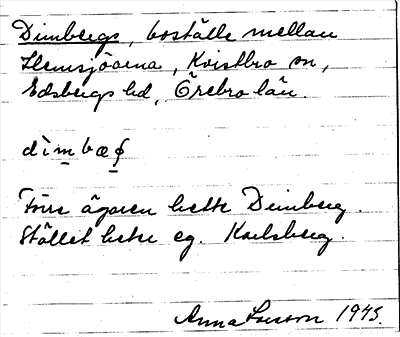 Dimbergs, boställe mellan
Hemsjöarna, Kvistbro sn,
Edsbergs hd, Örebro län.
dìm̲bæ
Förre ägaren hette Dimberg.
Stället heter eg. Karlsberg.
Anna Larsson 1945.